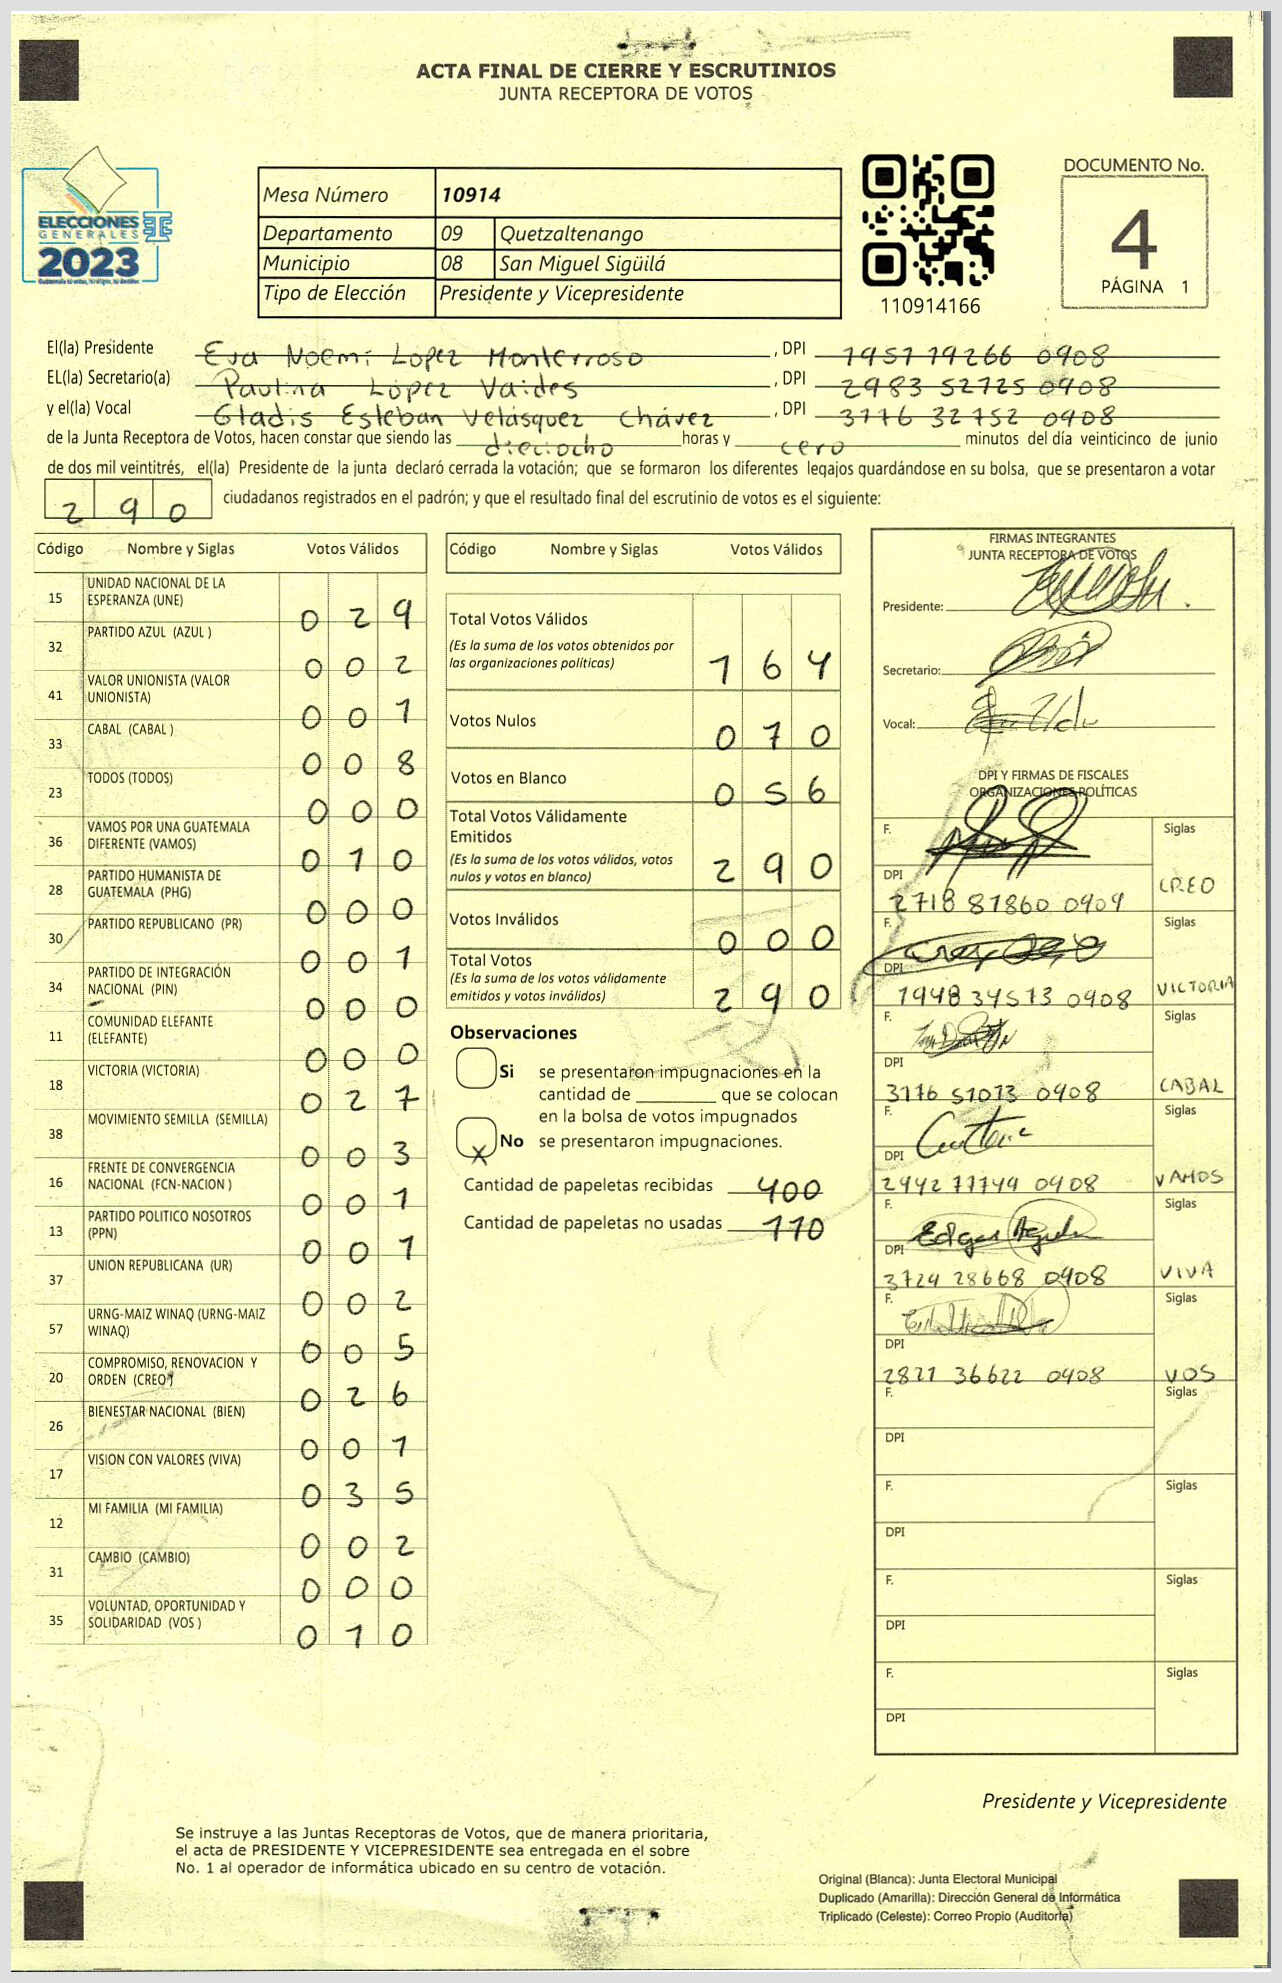 ACTA FINAL DE CIERRE Y ESCRUTINIOS
JUNTA RECEPTORA DE VOTOS
ELECCIONES
GENERALES
2023
Mesa Número 10914
Departamento 09 Quetzaltenango
Municipio 08 San Miguel Sigüilá
Tipo de Elección Presidente y Vicepresidente
110914166
DOCUMENTO No.
4
PÁGINA 1
El(la) Presidente Eva Noemí López Monterroso, DPI 1957 19266 0908
EL(la) Secretario(a) Paulina López Valdes, DPI 2983 52725 0908
y el(la) Vocal Gladis Esteban Velásquez Chávez, DPI 3176 32752 0908
de la Junta Receptora de Votos, hacen constar que siendo las dieciocho horas y cero minutos del día veinticinco de junio
de dos mil veintitrés, el(la) Presidente de la junta declaró cerrada la votación; que se formaron los diferentes legajos guardándose en su bolsa, que se presentaron a votar
290 ciudadanos registrados en el padrón; y que el resultado final del escrutinio de votos es el siguiente:
Código Nombre y Siglas Votos Válidos
15 UNIDAD NACIONAL DE LA ESPERANZA (UNE) 029
32 PARTIDO AZUL (AZUL ) 002
41 VALOR UNIONISTA (VALOR UNIONISTA) 001
33 CABAL (CABAL ) 008
23 TODOS (TODOS) 000
36 VAMOS POR UNA GUATEMALA DIFERENTE (VAMOS) 010
28 PARTIDO HUMANISTA DE GUATEMALA (PHG) 000
30 PARTIDO REPUBLICANO (PR) 001
34 PARTIDO DE INTEGRACIÓN NACIONAL (PIN) 000
11 COMUNIDAD ELEFANTE (ELEFANTE) 000
18 VICTORIA (VICTORIA) 027
38 MOVIMIENTO SEMILLA (SEMILLA) 003
16 FRENTE DE CONVERGENCIA NACIONAL (FCN-NACION ) 001
13 PARTIDO POLITICO NOSOTROS (PPN) 001
37 UNION REPUBLICANA (UR) 002
57 URNG-MAIZ WINAQ (URNG-MAIZ WINAQ) 005
20 COMPROMISO, RENOVACION Y ORDEN (CREO) 026
26 BIENESTAR NACIONAL (BIEN) 001
17 VISION CON VALORES (VIVA) 035
12 MI FAMILIA (MI FAMILIA) 002
31 CAMBIO (CAMBIO) 000
35 VOLUNTAD, OPORTUNIDAD Y SOLIDARIDAD (VOS ) 010
Código Nombre y Siglas Votos Válidos
Total Votos Válidos 164
(Es la suma de los votos obtenidos por
las organizaciones políticas)
Votos Nulos 070
Votos en Blanco 056
Total Votos Válidamente Emitidos 290
(Es la suma de los votos válidos, votos
nulos y votos en blanco)
Votos Inválidos 000
Total Votos 290
(Es la suma de los votos válidamente
emitidos y votos inválidos)
Observaciones
Si se presentaron impugnaciones en la
cantidad de ________ que se colocan
en la bolsa de votos impugnados
X No se presentaron impugnaciones.
Cantidad de papeletas recibidas 400
Cantidad de papeletas no usadas 110
FIRMAS INTEGRANTES
JUNTA RECEPTORA DE VOTOS
Presidente:
Secretario:
Vocal:
DPI Y FIRMAS DE FISCALES
ORGANIZACIONES POLÍTICAS
F. Siglas
DPI 2718 87860 0909 CREO
F. Siglas
DPI 1948 34513 0908 VICTORIA
F. Siglas
DPI 3176 51073 0908 CABAL
F. Siglas
DPI 2442 11149 0908 VAMOS
F. Edgar Siglas
DPI 3724 28668 0908 VIVA
F. Siglas
DPI 2821 36622 0908 VOS
F. Siglas
DPI
F. Siglas
DPI
F. Siglas
DPI
F. Siglas
DPI
Presidente y Vicepresidente
Se instruye a las Juntas Receptoras de Votos, que de manera prioritaria,
el acta de PRESIDENTE Y VICEPRESIDENTE sea entregada en el sobre
No. 1 al operador de informática ubicado en su centro de votación.
Original (Blanca): Junta Electoral Municipal
Duplicado (Amarilla): Dirección General de Informática
Triplicado (Celeste): Correo Propio (Auditoría)